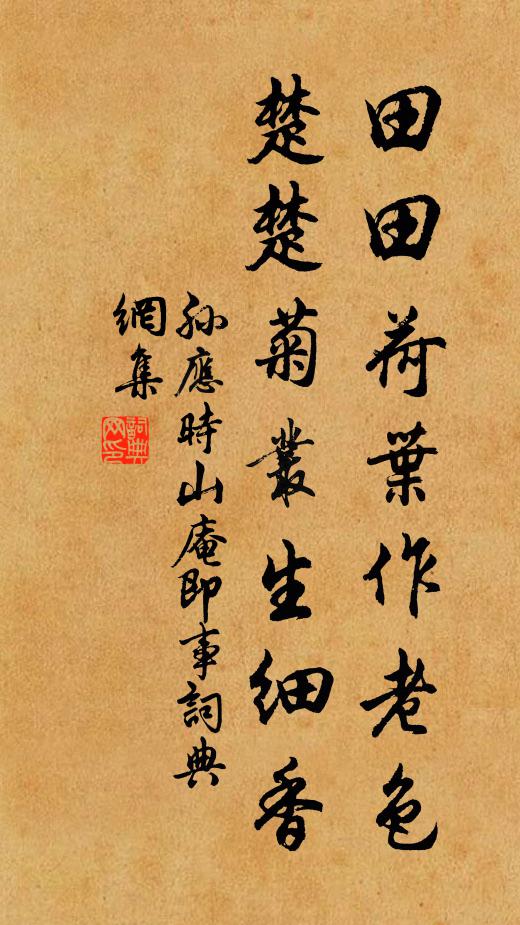 田田荷葉作老色
楚楚菊叢生細香
孫應時山庵即事詞典
網集
詞典
网印